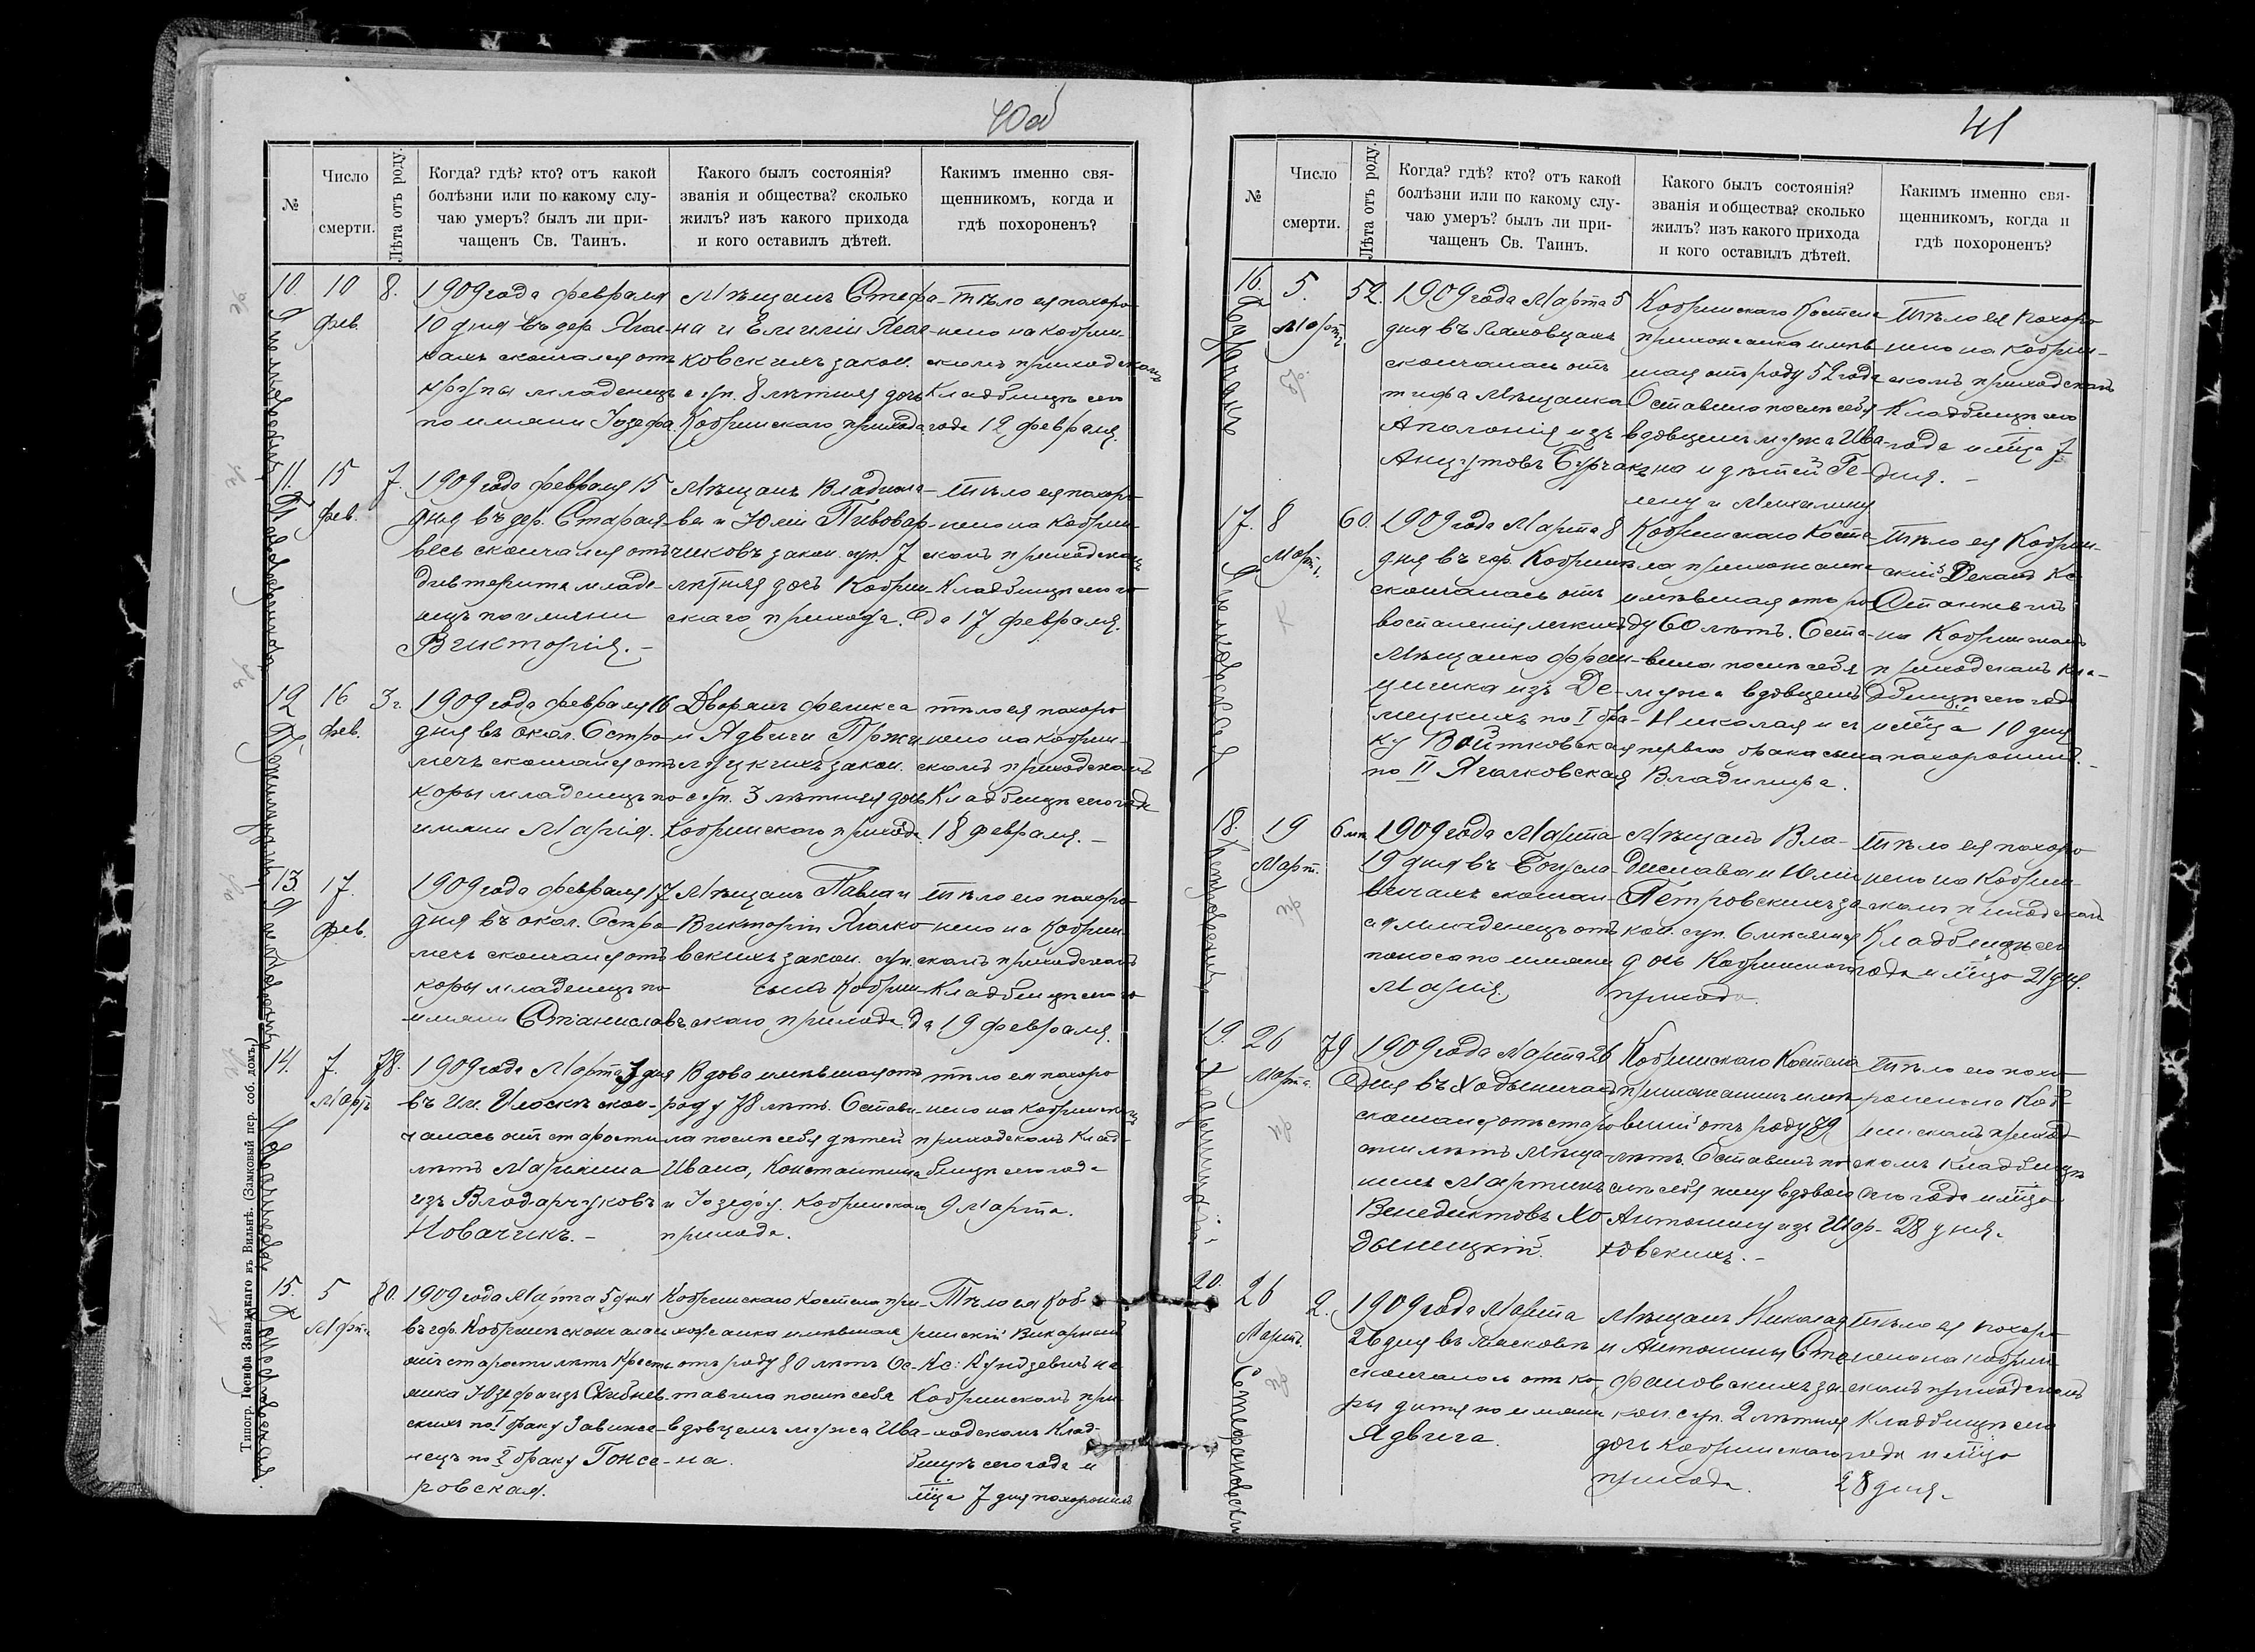 40об
№
Число
смерти.
Лѣта отъ роду.
Когда? гдѣ? кто? отъ какой
болѣзни или по какому слу-
чаю умеръ? былъ ли при-
чащенъ Св. Таинъ.
Какого былъ состоянія?
званія и общества? сколько
жилъ? изъ какого прихода
и кого оставилъ дѣтей.
Какимъ именно свя-
щенникомъ, когда и
гдѣ похороненъ?
10.
10
фев.
8.
1909 года февраля
10 дня въ дер.
скончался отъ
крупы младенецъ
по имени Іозефа
Мѣщанъ Стефа-
на и
ковскихъ закон.
суп. 8 лѣтняя дочь
Кобринскаго прихода
Тѣло ея похоро-
нено на Кобрин-
скомъ приходскомъ
Кладбищѣ сего
года 12 февраля.
11.
Пивоварчикова
15
фев.
7.
1909 года февраля 15
дня въ дер. Старая-
весь скончался отъ
дивтерита младе-
нецъ по имени
Викторія. —
Мѣщанъ Владисла-
ва и Юліи Пивовар-
чиковъ закон. суп. 7
лѣтняя дочь Кобрин-
скаго прихода.
Тѣло ея похоро-
нено на Кобрин-
скомъ приходскомъ
Кладбищѣ сего го-
да 17 февраля.
12
16
фев.
3 г.
1909 года февраля 16
дня въ окол. Остро-
мечъ скончался отъ
коры младенецъ по
имени Марія.
Дворянъ Феликса
и Ядвиги
закон.
суп. 3 лѣтняя дочь
Кобринскаго прихода.
Тѣло ея похоро-
нено на Кобрин-
скомъ приходскомъ
Кладбищѣ сего года
18 февраля. —
13.
17
фев.
1909 года февраля 17
дня въ окол. Остро-
мечъ скончался отъ
коры младенецъ по
имени Станиславъ
Мѣщанъ Павла и
Викторіи Ягелко-
вскихъ закон. суп.
сынъ Кобрин-
скаго прихода.
Тѣло его похоро-
нено на Кобрин-
скомъ приходскомъ
Кладбищѣ сего го-
да 19 февраля.
14.
7.
Март.
78.
1909 года Марта 7 дня
въ им. Илоскѣ скон-
чалась отъ старости
лѣтъ Маріанна
изъ Влодарчуковъ
Новачикъ. —
Вдова имѣвшая отъ
роду 78 лѣтъ. Остави-
ла послѣ себя дѣтей
Ивана, Константина
и Іозефу. Кобринскаго
прихода.
Тѣло ея похоро-
нено на Кобринскомъ
приходскомъ Клад-
бищѣ сего года
9 Марта.
15.
5
Март.
80.
1909 года Марта 5 дня
въ гор. Кобринѣ скончалась
отъ старости лѣтъ Кресть-
янка Юзефа изъ
скихъ по I браку
нецъ по 2 браку Гонсе-
ровская.
Кобринскаго Костела при-
хожанка имѣвшая
отъ роду 80 лѣтъ. Ос-
тавила послѣ себя
вдовцемъ мужа Ива-
на.
Тѣло ея Коб-
ринскій Викарный
Кс: Кундзевичъ на
Кобринскомъ при-
ходскомъ Клад-
бищѣ сего года и
мѣца 7 дня похоронилъ
Типогр. Іосифа Завадзкаго въ Вильнѣ. (Замковый пер. соб. домъ.)
41
№
Число
смерти.
Лѣта отъ роду.
Когда? гдѣ? кто? отъ какой
болѣзни или по какому слу-
чаю умеръ? былъ ли при-
чащенъ Св. Таинъ.
Какого былъ состоянія?
званія и общества? сколько
жилъ? изъ какого прихода
и кого оставилъ дѣтей.
Какимъ именно свя-
щенникомъ, когда и
гдѣ похороненъ?
16.
5.
Март.
52.
1909 года Марта 5
дня въ Ляховцахъ
скончалась отъ
тифа Мѣщанка
Аполонія изъ
Анцутовъ Бурчакъ
Кобринскаго Костела
прихожанка имѣв-
шая отъ роду 52 года
Оставила послѣ себя
вдовцемъ мужа Ива-
на и дѣтей Ге-
лену и Михалину
Тѣло ея похоро-
нено на Кобрин-
скомъ приходскомъ
Кладбищѣ сего
года и мѣца 7
дня. —
17.
8
Март.
60.
1909 года Марта 8
дня въ гор. Кобринѣ
скончалась отъ
воспаленія легкихъ
Мѣщанка Фран-
цишка изъ Де-
мецкихъ по I бра-
ку Войтковская
по II Ягелковская
Кобринскаго Косте-
ла прихожанка
имѣвшая отъ ро-
ду 60 лѣтъ. Оста-
вила послѣ себя
мужа вдовцемъ
Николая и съ
перваго брака сына
Владимира.
Тѣло ея Кобрин-
скій Деканъ Кс.
на Кобринскомъ
приходскомъ Кла-
дбищѣ сего года
и мѣца 10 дня
похоронилъ. —
18.
Петровская
19
Март.
6 мѣ.
1909 года Марта
19 дня въ Богусла-
вичахъ скончал-
ся младенецъ отъ
поноса по имени
Марія.
Мѣщанъ Вла-
дислава и Юліи
Петровскихъ за-
кон. суп. 6 мѣсячная
дочь Кобринскаго
прихода.
Тѣло ея похоро-
нено на Кобрин-
скомъ приходскомъ
Кладбищѣ сего
года и мѣца 21 дня.
19.
Ходынецкій
26
Марта
79
1909 года Марта 26
дня въ Ходыничахъ
скончался отъ старо-
сти лѣтъ Мѣща-
нинъ Мартинъ
Венедиктовъ Хо-
дынецкій.
Кобринскаго Костела
прихожанинъ имѣ-
вшій отъ роду 79
лѣтъ. Оставилъ по-
слѣ себя жену вдовою
Антонину изъ
ковскихъ. —
Тѣло его похо-
ронено на Коб-
ринскомъ приход-
скомъ Кладбищѣ
сего года и мѣца
28 дня.
20.
Стефановская
26
Март.
2.
1909 года Марта
26 дня въ
скончалось отъ ко-
ры дитя по имени
Ядвига.
Мѣщанъ Николая
и Антонины Сте-
фановскихъ за-
кон. суп. 2 лѣтняя
дочь Кобринскаго
прихода.
Тѣло ея похоро-
нено на Кобрин-
скомъ приходскомъ
Кладбищѣ сего
года и мѣца
28 дня.